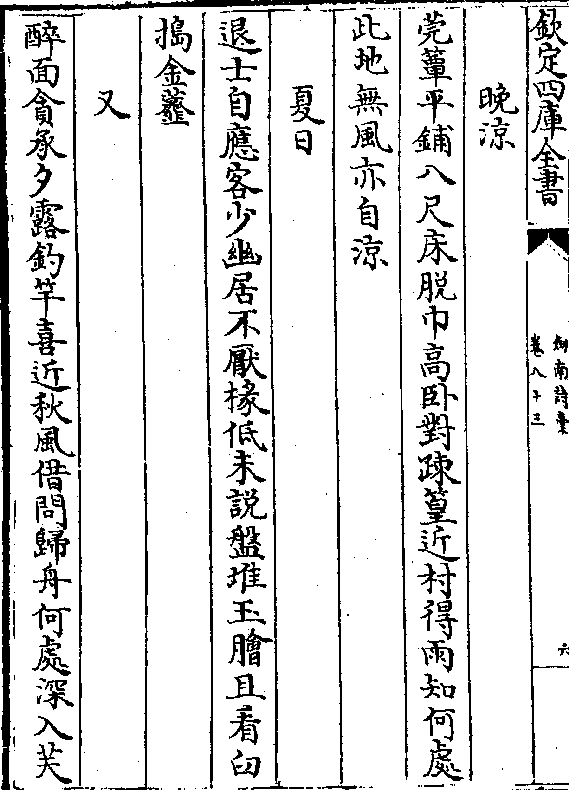 欽定四庫全書
劍南詩稾
卷八十三
六
晚涼
莞蕈平鋪八尺床脱巾高卧對疎篁近村得雨知何處
此地無風亦自涼
夏日
退士自應客少幽居不厭椽低未説盤堆玉膾且看臼
搗金虀
又
醉面貪承夕露釣竿喜近秋風借問歸舟何處深入芙